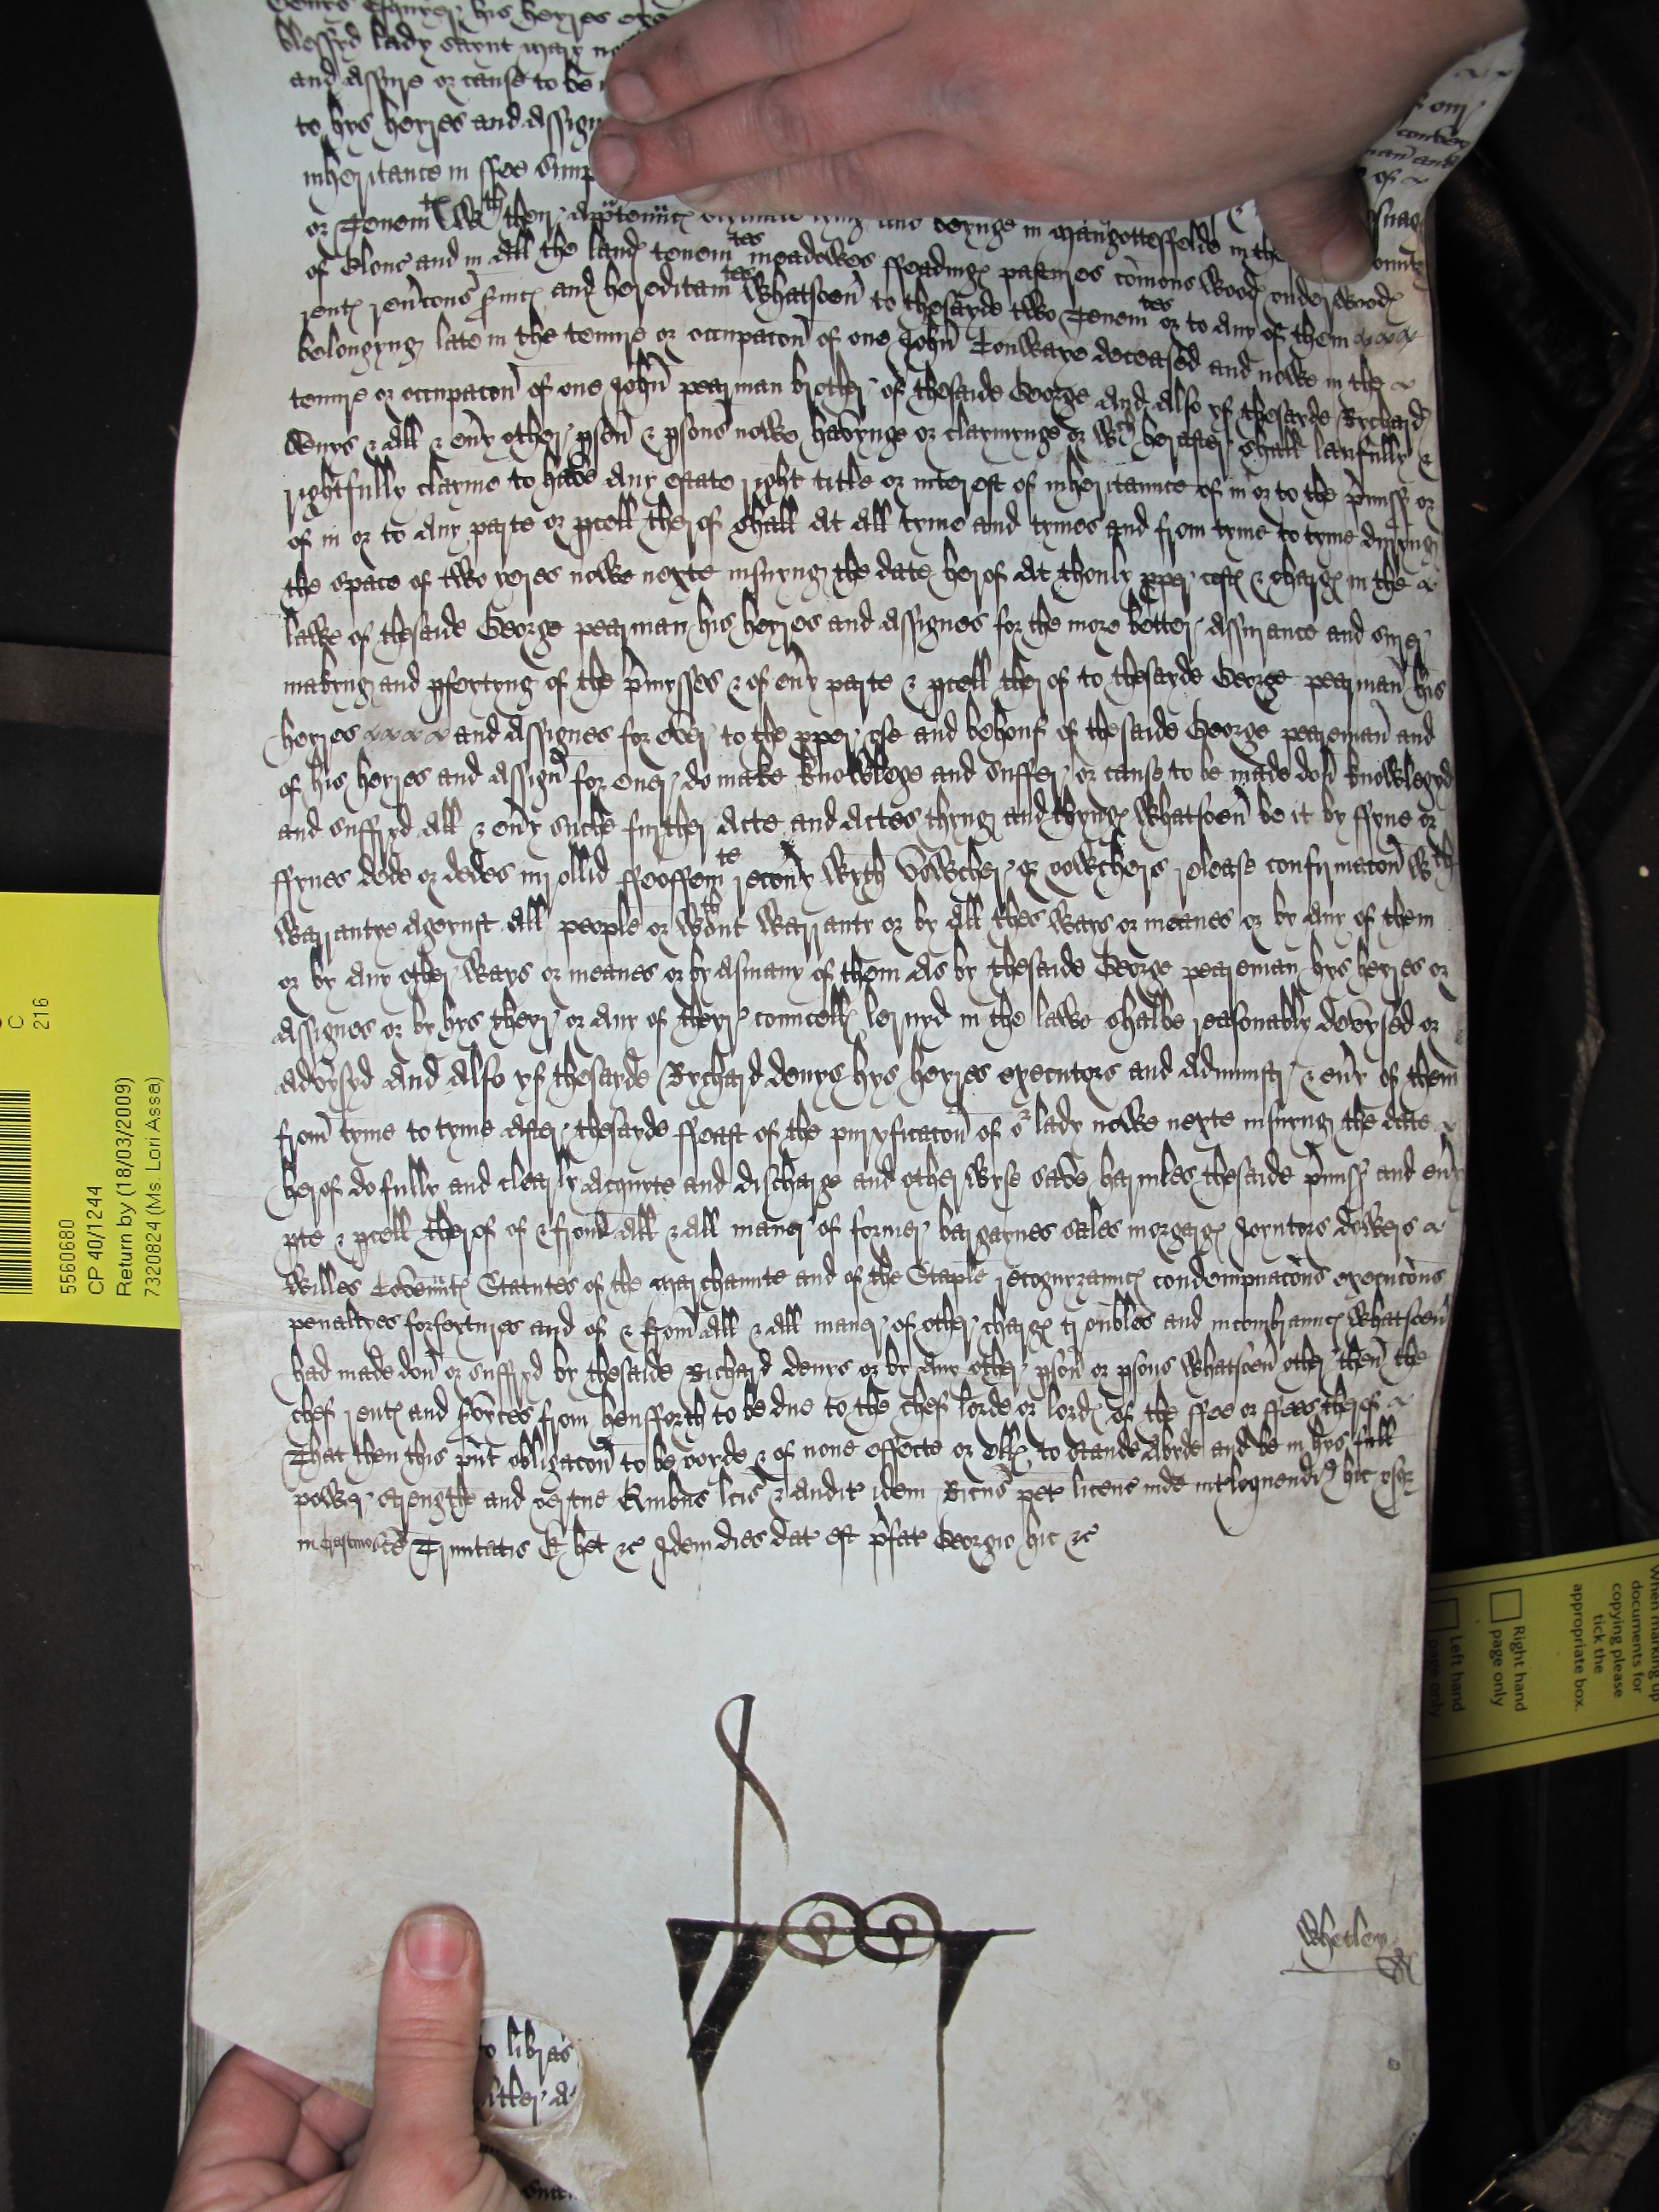 Denys Esquyer his heyres
blessyd lady saynt mary
and assure or cause to be
to hys heyres and assign
inheritance in ffee simp
or Tenemtes wth their belonging and beynge in mangottesfelde in the
of Glouc and in all the lande tenemtes meadowes ffeadinge pastures comons woode underwoode
rente revcons and hereditamtes whatsoeur to thesayde two Tenemtes or to any of them
belongyng late in the tenure or occupacon of one John deceased and nowe in the
tenure or occupacon of one John pearman brother of thesaide George And also yf thesayde Rychard
denys & all & eury other pson & psons nowe havynge or claymynge or wch herafter shall laufully &
rightfully clayme to have any estate right title or interest of inheritaunce of in or to the pmiss or
of in or to any parte or pcell therof shall at all tyme and tymes and from tyme to tyme duryng
the space of two yeres nowe nexte insuyng the date herof at thonly pper coste & charge in the
lawe of thesaide George pearman his heyres and assignes for the more better assurance and suer
makyng and pfectyng of the pmysses & of eury parte & pcell therof to thesayde George pearman his
heyres and assignes for ever to the pper use and behouf of thesaide George peareman and
of his heyres and assign for euer do make knowlege and suffer or cause to be made don knowlegyd
and suffryd all & eury suche further acte and actes thyng and thynge whatsoeur be it by ffyne or
ffynes dede or dedes inrollid ffeoffemte recoury wyth vowcher or vowchers release confirmacon wth
warrantye ageynst all people or wthout warranty or by all thes ways or meanes or by any of them
or by any other ways or meanes or by asmany of them as by thesaide George peareman hys heyres or
assignes or by hys theyr or any of theyr councell lernyd in the lawe shalbe reasonably devysed or
advysyd And also yf thesayde Rychard denys hys heyres executors and administr & eury of them
from tyme to tyme after thesayde ffeast of the puryficacon of or lady nowe nexte insuyng the date
herof do fully and clearly acquyte and discharge and otherwyse save harmles thesaide pmiss and eury
pte & pcell therof of & from all & all maner of former bargaynes sales morgage Joyntors dowers
willes Statutes of the marchaunte and of the Staple recognyzaunce condempnacons execucons
penaltyes forfeytures and of & from all & all maner of other charge troubles and incombraunce whatsoeur
had made don or suffryd by thesaide Richard denys or by any other pson or psons whatsoeur other then the
chef rente and svyces from hensforth to be due to the chef lorde or lorde of the ffee or ffees therof
That then this pnt obligacon to be voyde & of none effecte or elle to stande abyde and be in hys full
power strengthe and vertue Quibus lcis & audit idem Ricus pet licenc inde intloquendi hic usqz
in crastino sce Trinitatis Et het &c Idem dies dat est pfat Georgio hic &c
Whetley
o libras
5560680
CP 40/1244
Return by (18/03/2009)
7320824 (Ms. Lori Assa)
C
216
When marking up
documents for
copying please
tick the
appropriate box.
Right hand
page only
Left hand
page only